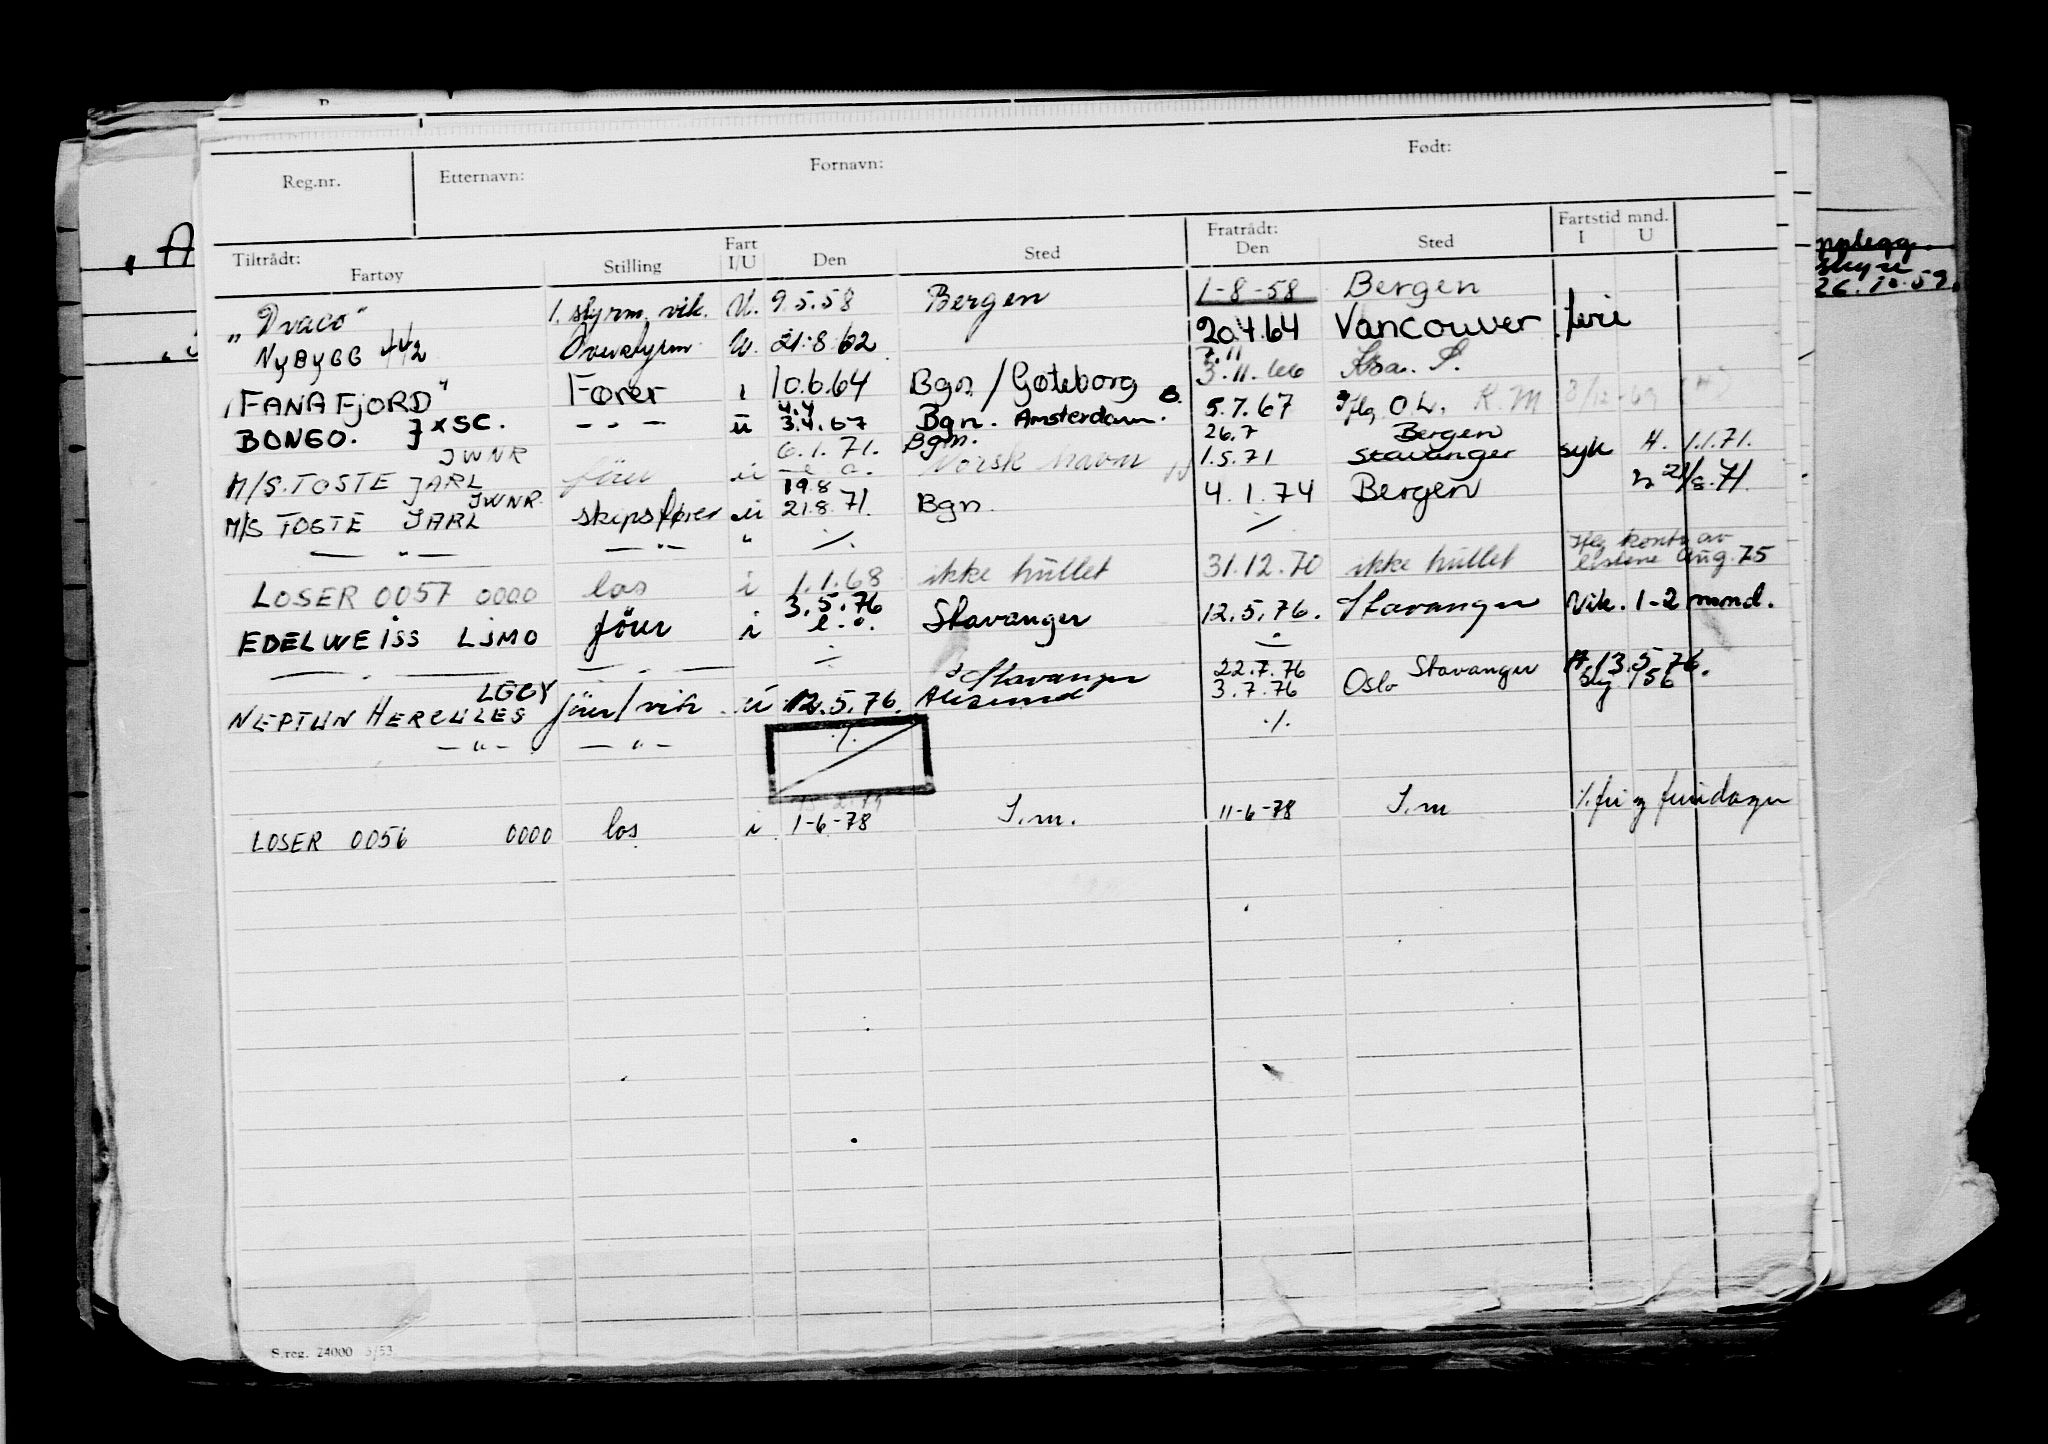 Reg.nr. Etternavn: Fornavn: Født:
Tiltrådt: Fartøy Stilling Fart I/U Den Sted Fratrådt: Den Sted Fartstid mnd. I U
"Draco" 1. styrm. vik. U. 9.5.58 Bergen 1-8-58 Bergen
NyByGG 442 Overstyrm U. 21.8.62 20.4.64 Vancouver ferie
"FANAFJORD" Fører i 10.6.64 Bgn / Gøteborg 3.11.66
BONGO. JXSC. - " - u 4.4 3.4.67 Bgn. Amsterdam. 5.7.67 Iflg O.L. K.M
JWNR 6.1.71. Bgn. 26.7 Bergen
M/S. TOSTE JARL förer u Norsk navn 1.5.71 Stavanger syk A. 1.1.71.
JWNR 19.8
M/S TOSTE JARL skipsfører u 21.8.71. Bgn. 4.1.74 Bergen
— " — — " — " ./. ./.
LOSER 0057 0000 los i 1.1.68 ikke hullet 31.12.70 ikke hullet Iflg kontr av listene Aug. 75
EDELWEISS LJMO förer i 3.5.76 Stavanger 12.5.76. Stavanger Vik. 1-2 mnd.
— " — — " —
LGCY Stavanger 22.7.76 Stavanger A. 13.5.76.
NEPTUN HERCULES förer/vik u 12.5.76. Ålesund 3.7.76 Oslo
— " — — " — ./. ./.
LOSER 0056 0000 los i 1-6-78 I.m. 11-6-78 I.m ./. fri og feridager
S.reg. 24000 5/53
26.10.59.